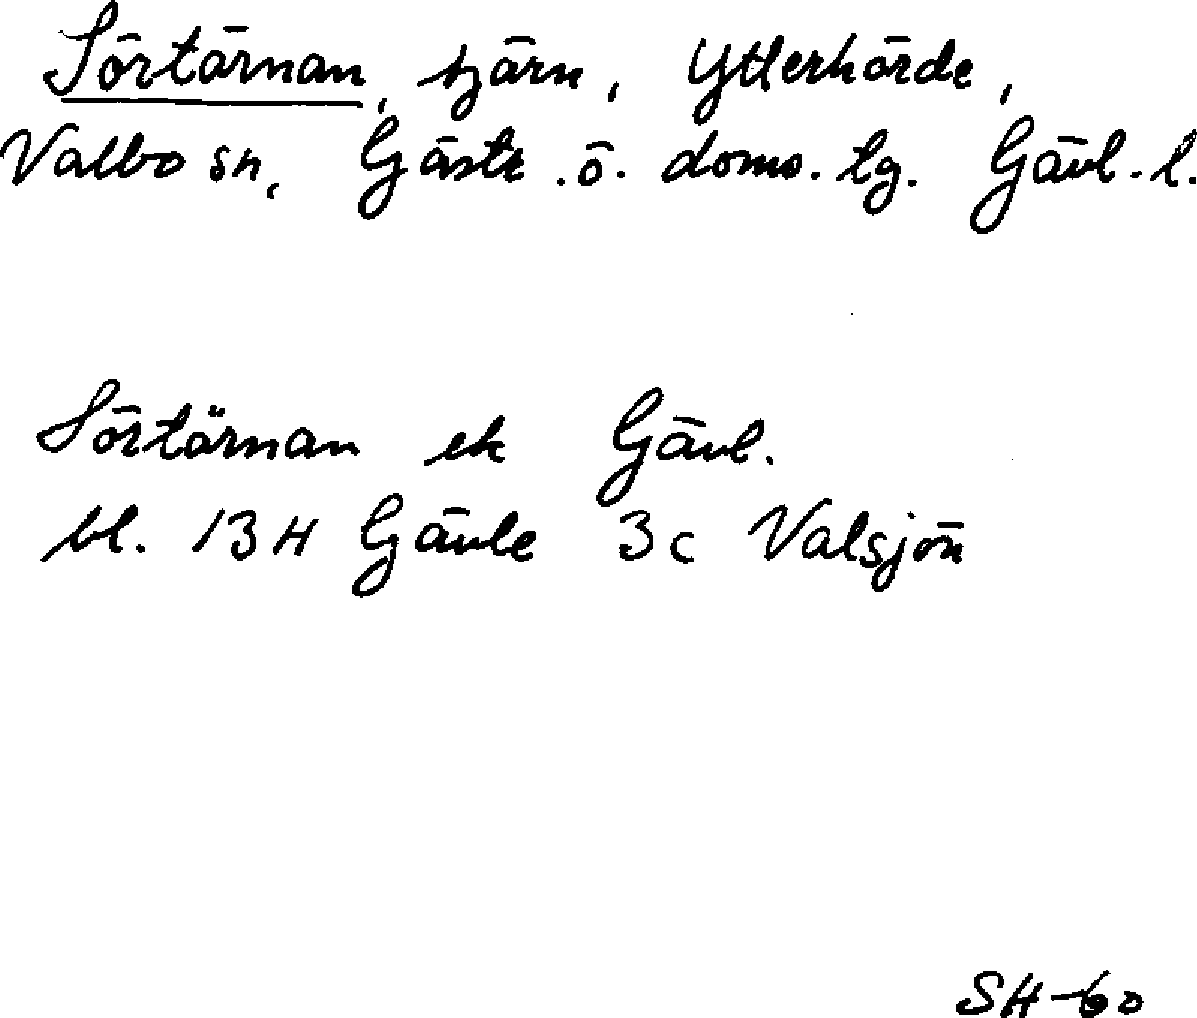 Sörtärnan, tjärn, Ytterhärde,
Valbo sn, Gästr. ö. doms. lg. Gävl. l.
Sörtärnan ek Gävl.
bl. 13H Gävle 3c Valsjön
SH-60